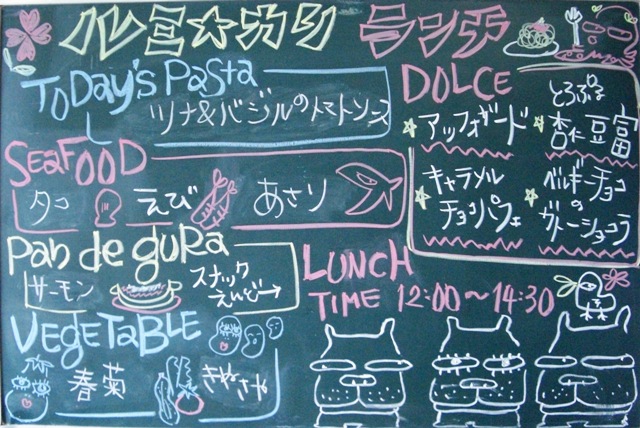 ルミ☆カリ ランチ
ToDay's Pasta
ツナ&バジルのトマトソース
SeaFOOD
タコ えび あさり
Pan de guRa
サーモン スナックえんどう→
VegeTaBLE
春菊 きぬさや
DOLCE
アッフォガード
とろぷる
杏仁豆富
キャラメル
チョコパフェ
ベルギーチョコ
の
ガトーショコラ
LUNCH
TIME 12:00〜14:30